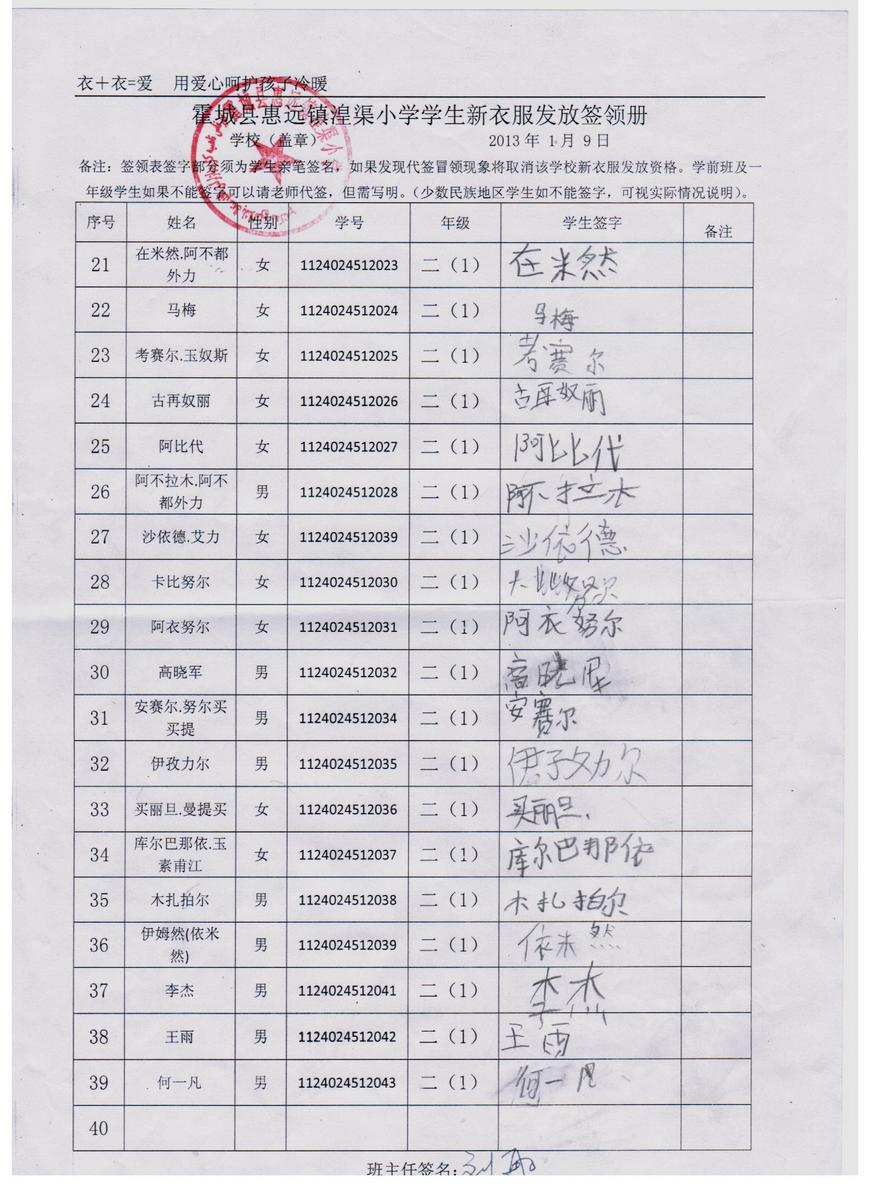 衣+衣=爱 用爱心呵护孩子冷暖
霍城县惠远镇湟渠小学学生新衣服发放签领册
学校（盖章） 2013 年 1 月 9 日
备注：签领表签字部分须为学生亲笔签名，如果发现代签冒领现象将取消该学校新衣服发放资格。学前班及一
年级学生如果不能签字可以请老师代签，但需写明。（少数民族地区学生如不能签字，可视实际情况说明）。
序号 姓名 性别 学号 年级 学生签字 备注
21 在米然.阿不都外力 女 1124024512023 二（1） 在米然
22 马梅 女 1124024512024 二（1） 马梅
23 考赛尔.玉奴斯 女 1124024512025 二（1） 考赛尔
24 古再奴丽 女 1124024512026 二（1） 古再奴丽
25 阿比代 女 1124024512027 二（1） 阿比代
26 阿不拉木.阿不都外力 男 1124024512028 二（1） 阿不拉木
27 沙依德.艾力 女 1124024512039 二（1） 沙依德
28 卡比努尔 女 1124024512030 二（1） 努尔
29 阿衣努尔 女 1124024512031 二（1） 阿衣努尔
30 高晓军 男 1124024512032 二（1） 高晓军
31 安赛尔.努尔买买提 男 1124024512034 二（1） 安赛尔
32 伊孜力尔 男 1124024512035 二（1） 伊孜力尔
33 买丽旦.曼提买 女 1124024512036 二（1） 买丽旦
34 库尔巴那依.玉素甫江 女 1124024512037 二（1） 库尔巴那依
35 木扎拍尔 男 1124024512038 二（1） 木扎拍尔
36 伊姆然(依米然) 男 1124024512039 二（1） 依米然
37 李杰 男 1124024512041 二（1） 李杰
38 王雨 男 1124024512042 二（1） 王雨
39 何一凡 男 1124024512043 二（1） 何一凡
40
班主任签名: